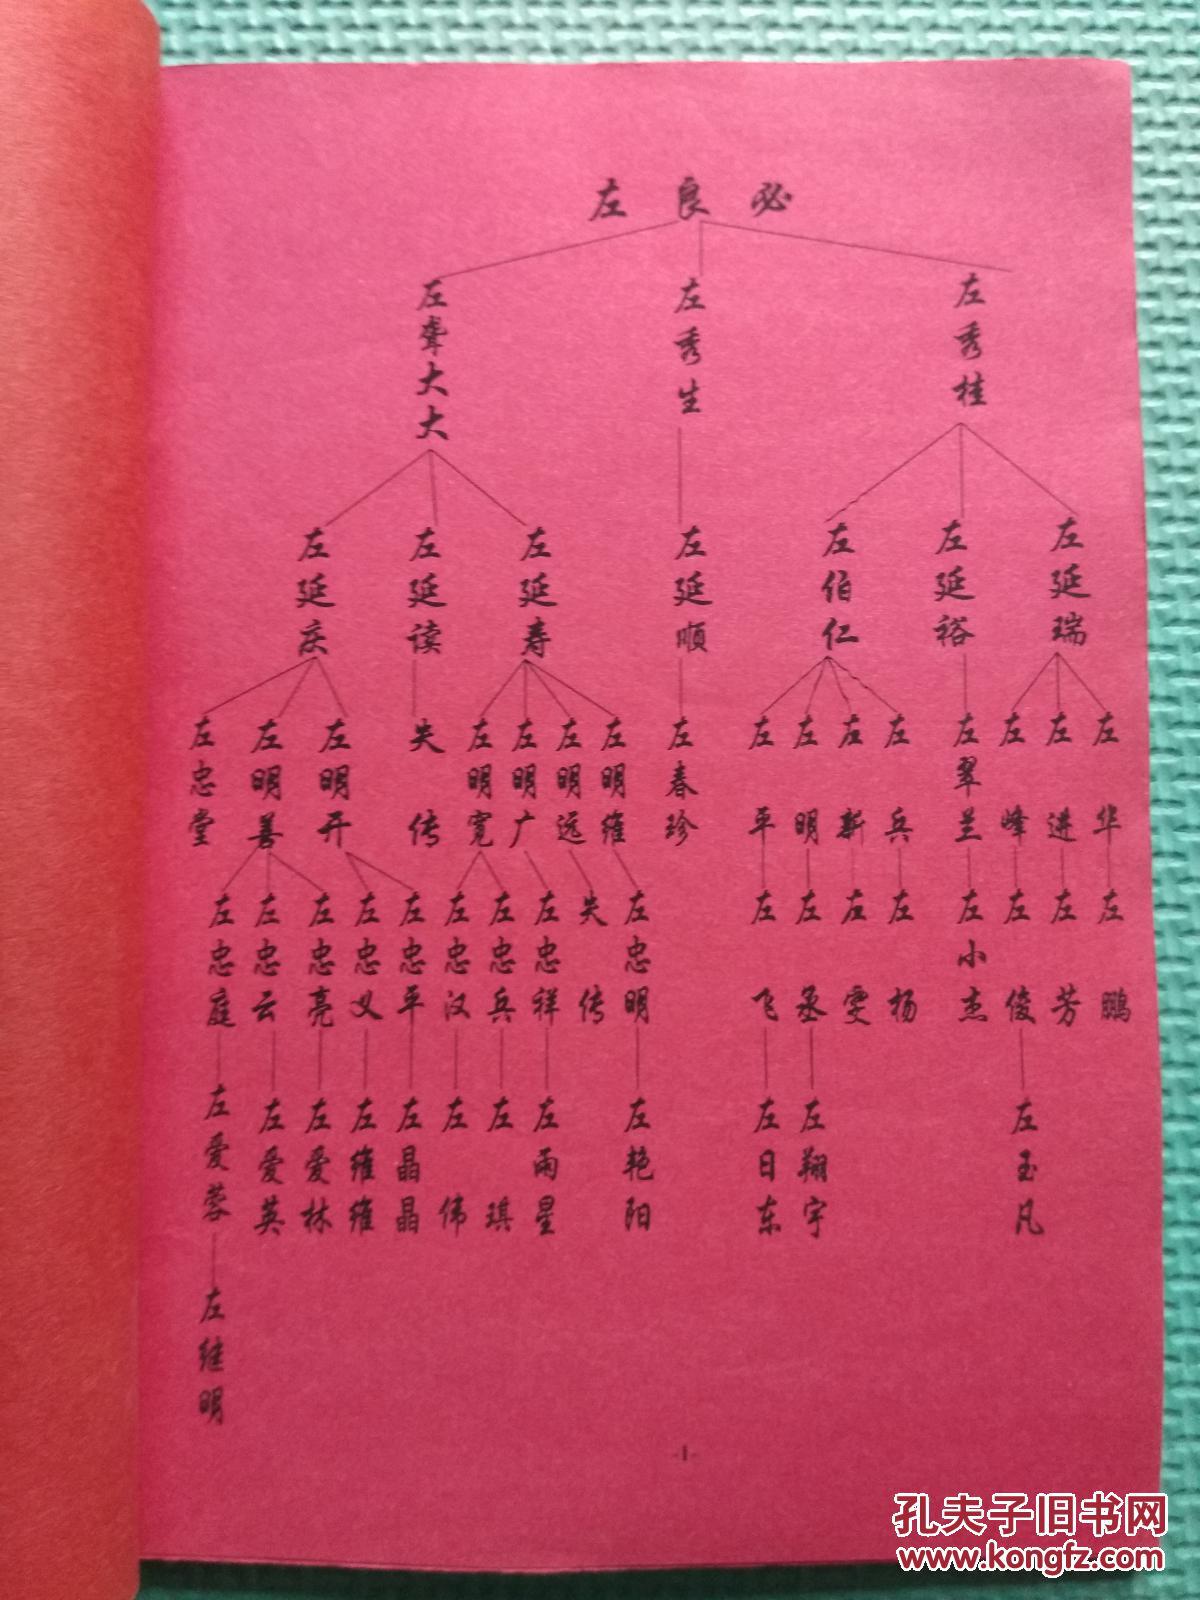 左良必
左聋大大
左秀生
左秀桂
左延庆
左延读
左延寿
左延顺
左伯仁
左延裕
左延瑞
左忠堂
左明善
左明开
失传
左明宽
左明广
左明远
左明维
左春珍
左平
左明
左新
左兵
左翠兰
左峰
左进
左华
左忠庭
左忠云
左忠亮
左忠义
左忠平
左忠汉
左忠兵
左忠祥
失传
左忠明
左飞
左丞
左雯
左杨
左小杰
左俊
左芳
左鹏
左爱蓉
左爱英
左爱林
左维维
左晶晶
左伟
左琪
左雨星
左艳阳
左日东
左翔宇
左玉凡
左继明
-1-
孔夫子旧书网
www.kongfz.com